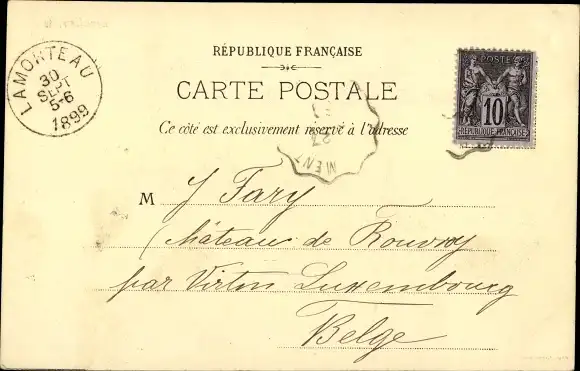 RÉPUBLIQUE FRANÇAISE
CARTE POSTALE
Ce côté est exclusivement réservé à l'adresse
LAMORTEAU
30
SEPT
5-6
1899
POSTE
10
RÉPUBLIQUE FRANÇAISE
MENT
M J Fary
Château de Rouvroy
par Virton Luxembourg
Belge